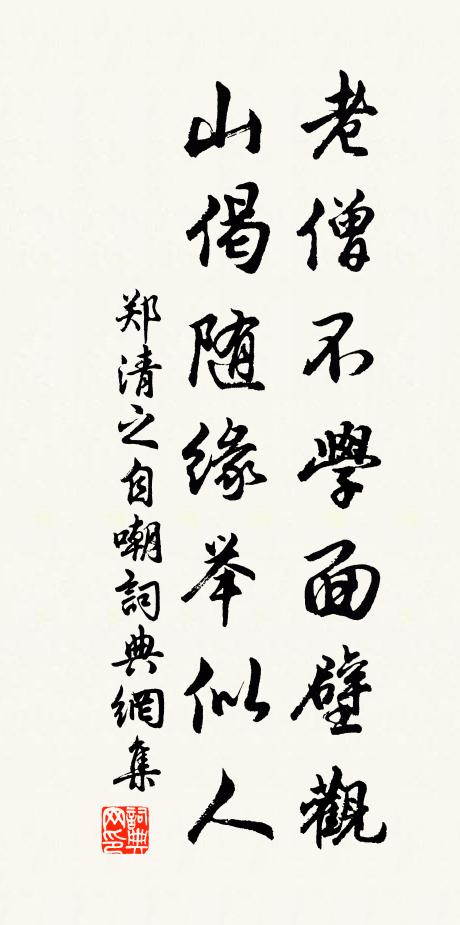 老僧不學面壁觀
山偈随緣举似人
郑清之自嘲詞典網集
詞典网印